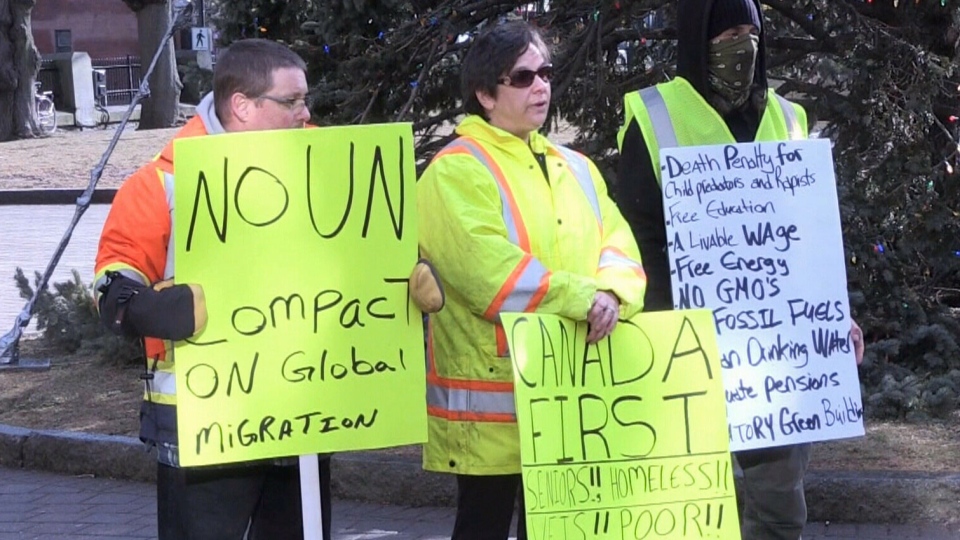 NO UN
COMPACT
ON Global
MiGRATION
CANADA
FIRST
SENIORS!! HOMELESS!!
VETS!! POOR!!
-Death Penalty for
Child predators and Rapists
-Free Education
-A Livable WAge
-Free Energy
-NO GMO'S
FOSSIL FUELS
Drinking WAter
pensions
Green